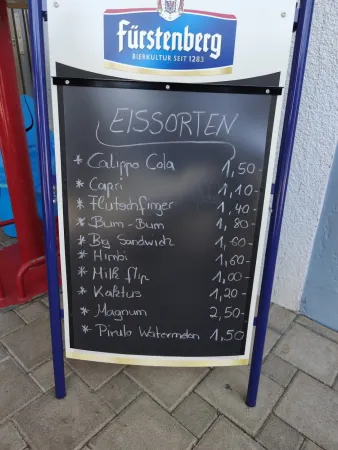 Fürstenberg
BIERKULTUR SEIT 1283
EISSORTEN
* Calippo Cola 1,50
* Capri 1,10-
* Flutschfinger 1,40-
* Bum-Bum 1,80-
* Big Sandwich 1,60-
* Himbi 1,60-
* Milk flip 1,00-
* Kaktus 1,20-
* Magnum 2,50-
* Pirulo Watermelon 1,50